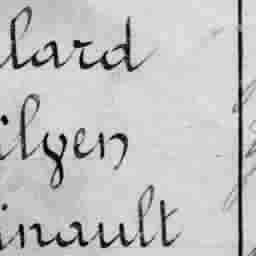 lard
ilyen
inault